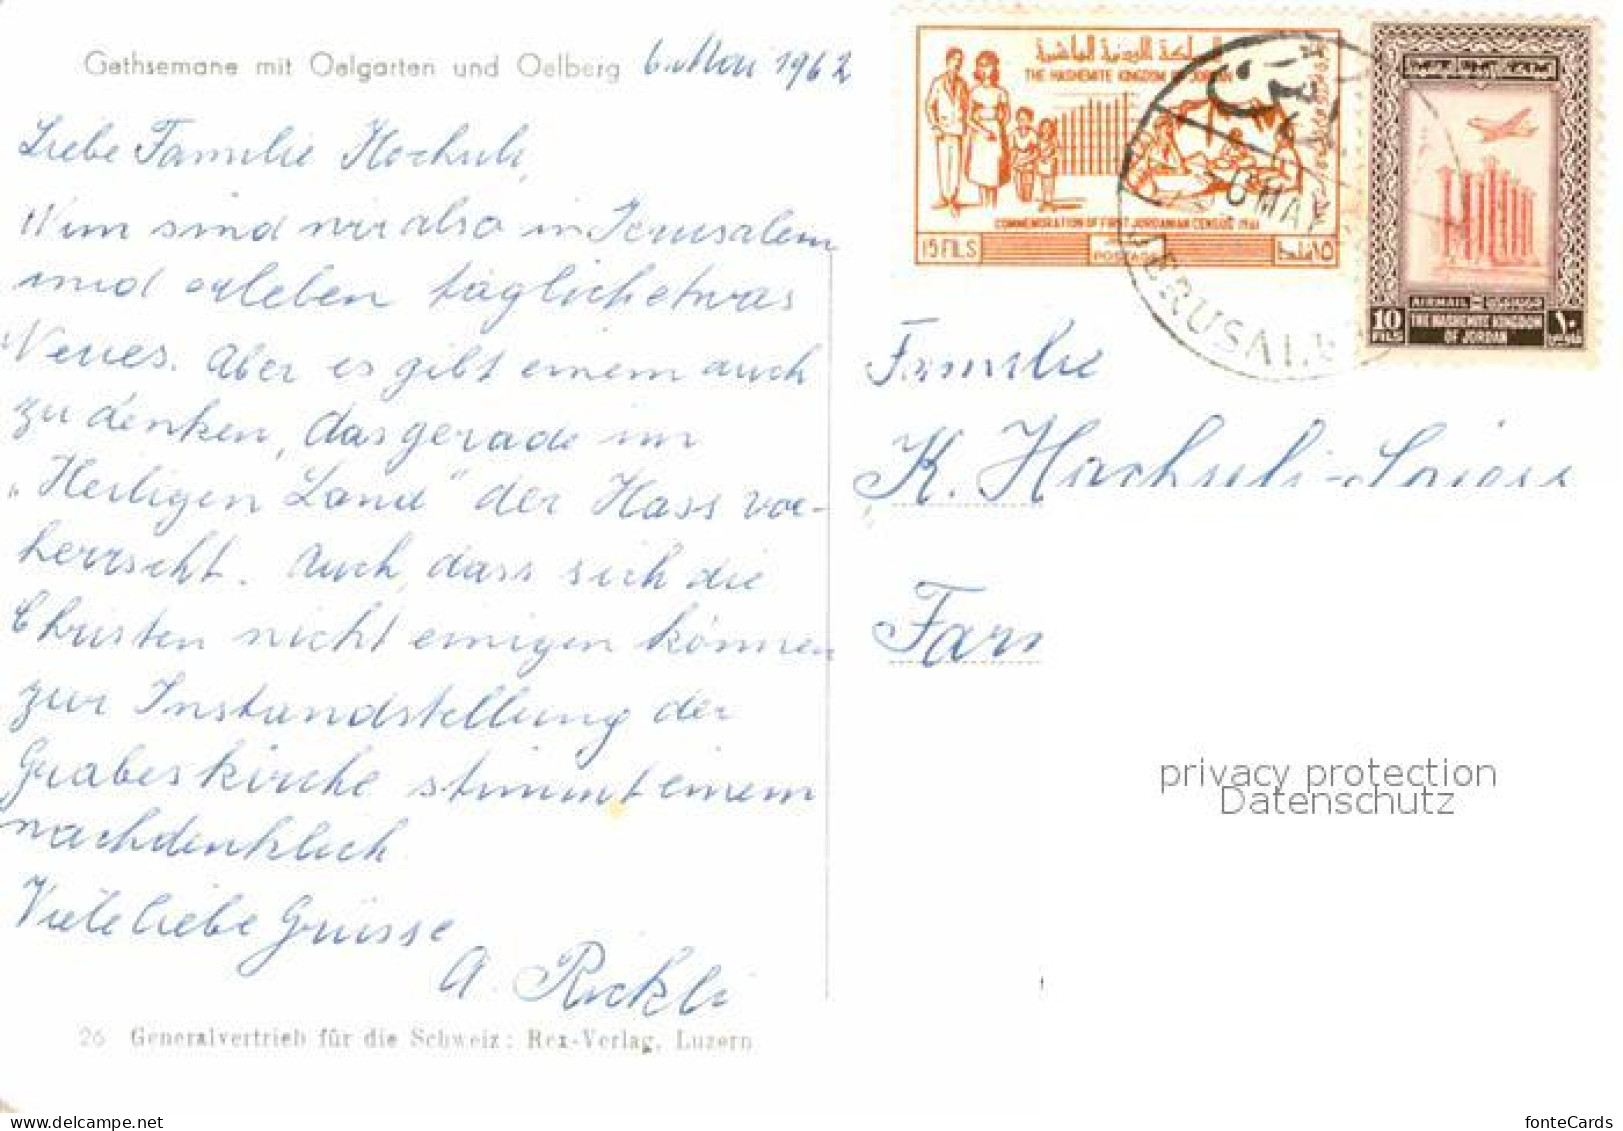 Gethsemane mit Oelgarten und Oelberg 6. Mai 1962
Liebe Familie Hochuli,
Nun sind wir also in Jerusalem
und erleben täglich etwas
Neues. Aber es gibt einem auch
zu denken, das gerade im
"Heiligen Land" der Hass vor-
herrscht. Auch, dass sich die
Christen nicht einigen können
zur Instandstellung der
Grabeskirche stimmt einem
nachdenklich
Viele liebe Grüsse
A. Rickli
26 Generalvertrieb für die Schweiz: Rex-Verlag, Luzern
المملكة الاردنية الهاشمية
THE HASHEMITE KINGDOM OF JORDAN
COMMEMORATION OF FIRST JORDANIAN CENSUS 1961
15 FILS
POSTAGE
١٥ فلسا
MAY
JERUSALE
AIRMAIL
10 FILS THE HASHEMITE KINGDOM OF JORDAN ١٠
Familie
K. Hochuli-
Fam
privacy protection
Datenschutz
www.delcampe.net
fonteCards